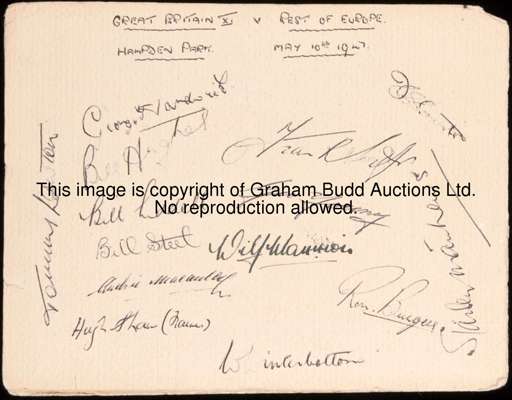 GREAT BRITAIN XI v REST OF EUROPE.
HAMPDEN PARK. MAY 10th 1947.
George Hardwick
Billy Hughes
Frank Swift
Tommy Lawton
This image is copyright of Graham Budd Auctions Ltd.
No reproduction allowed.
Bill
Billy Steel
Wilf Mannion
Archie Macaulay
Ron. Burgess
Hugh Shaw (Trainer)
Winterbottom